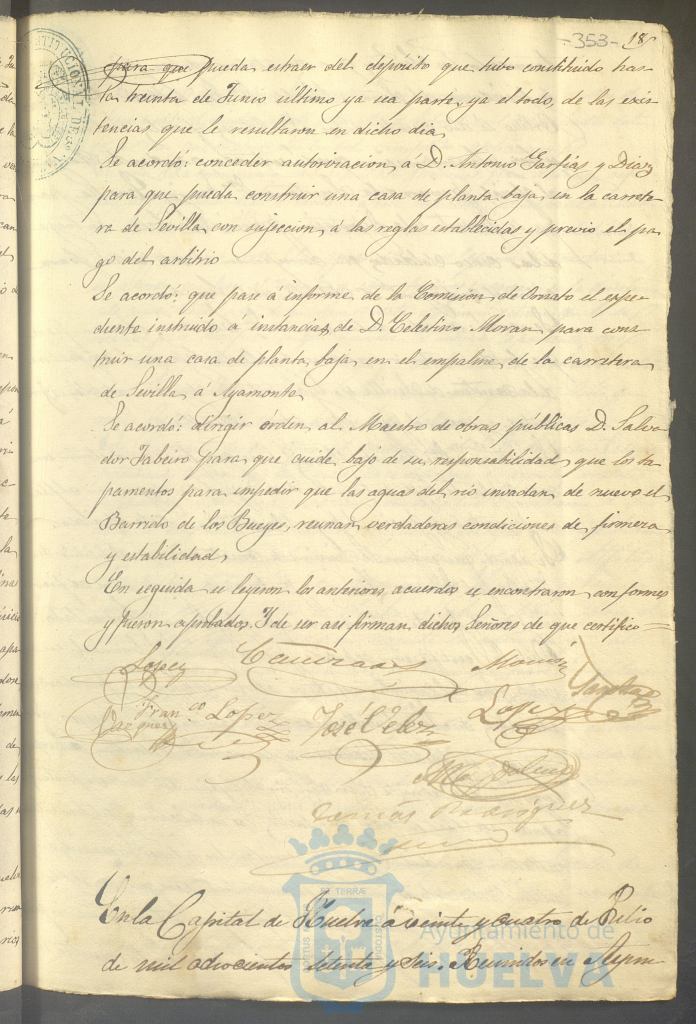 -353- 18
para que pueda estraer del depósito que tubo constituido has-
ta treinta de Junio último ya sea parte, ya el todo, de las exis-
tencias que le resultaron en dicho dia
Se acordó: conceder autorizacion, á D. Antonio Garfias y Diaz
para que pueda construir una casa de planta baja en la carrete-
ra de Sevilla con sujeccion, á las reglas establecidas y previo el pa-
go del arbitrio
Se acordó: que pase á informe de la Comision, de Ornato el espe-
diente instruido á instancias de D. Celestino Moran para cons-
truir una casa de planta baja en el empalme de la carretera
de Sevilla á Ayamonte
Se acordó: dirigir órden al Maestro de obras públicas D. Salva-
dor Tabeiro para que cuide bajo de su responsabilidad que los ta-
pamentos para impedir que las aguas del rio invadan de nuevo el
Barrido de los Bueyes, reunan verdaderas condiciones de firmeza
y estabilidad,
En seguida se leyeron los anteriores acuerdos se encontraron conformes
y fueron aprobados. Y de ser asi firman dichos Señores de que certifico=
Lopez
Vazquez Franco Lopez José Velez Lopez
Tomás Rodriguez
En la Capital de Huelva á veinte y cuatro de Julio
de mil ochocientos setenta y seis. Reunidos en Ayun-
Ayuntamiento de
HUELVA